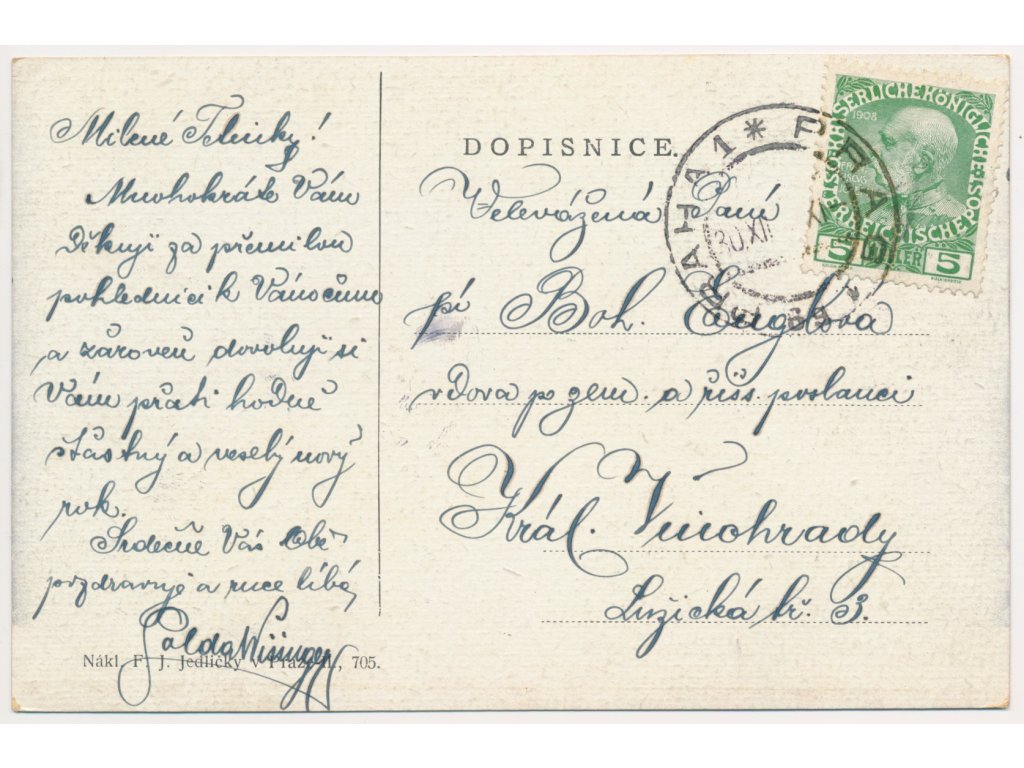 Milené Tetinky!
Mnohokráte Vám
Děkuji za přemilou
pohlednici k Vánocům
a zároveň dovoluji si
Vám přáti hodně
šťastný a veselý nový
rok.
Srdečně Vás Obě
pozdravuje a ruce líbá
Nákl. F. J. Jedličky v Praze II., 705.
DOPISNICE.
Velevážená Paní
pí Boh. Englova
vdova po zem. a říšs. poslanci
Král. Vinohrady
Lužická tř. 3.
PRAHA 1 * PRAG
30.XII
KAISERLICHE KÖNIGLICHE ÖSTERREICHISCHE POST
1908
5 HELLER 5